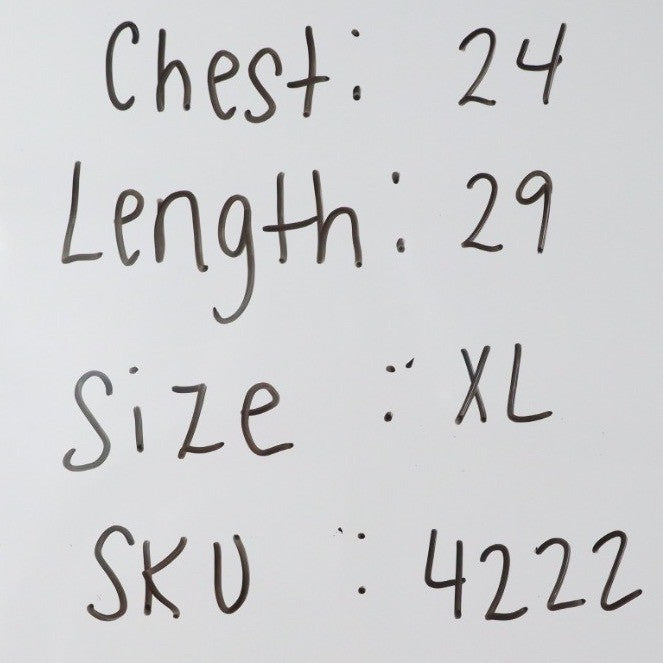 Chest: 24
Length: 29
Size : XL
SKU : 4222